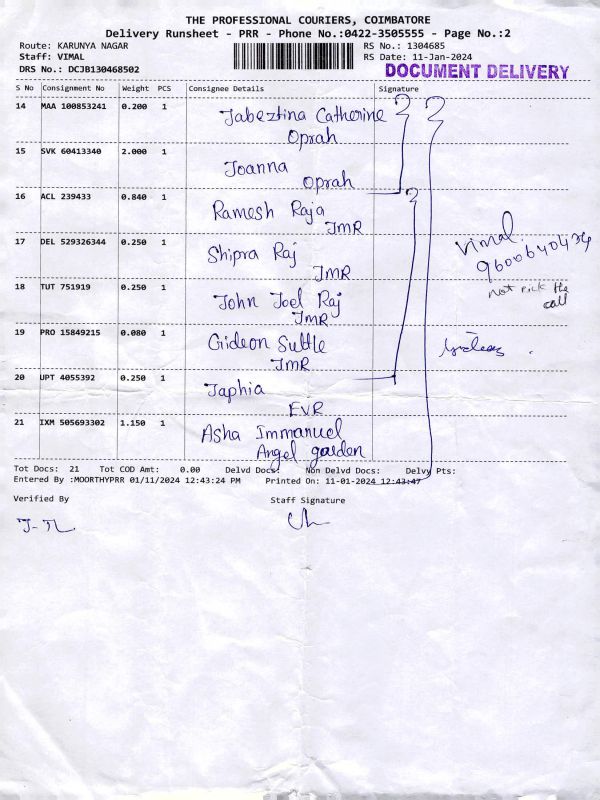 THE PROFESSIONAL COURIERS, COIMBATORE
Delivery Runsheet - PRR - Phone No.:0422-3505555 - Page No.:2
Route: KARUNYA NAGAR
Staff: VIMAL
DRS No.: DCJB130468502
RS No.: 1304685
RS Date: 11-Jan-2024
DOCUMENT DELIVERY
S No Consignment No Weight PCS Consignee Details Signature
14 MAA 100853241 0.200 1 Jabeztina Catherine
Oprah
15 SVK 60413340 2.000 1 Joanna
Oprah
16 ACL 239433 0.840 1 Ramesh Raja
JMR
17 DEL 529326344 0.250 1 Shipra Raj
JMR
18 TUT 751919 0.250 1 John Joel Raj
JMR
19 PRO 15849215 0.080 1 Gideon Suttle
JMR
20 UPT 4055392 0.250 1 Japhia
EVR
21 IXM 505693302 1.150 1 Asha Immanuel
Angel garden
Vimal
not pick the
call
Tot Docs: 21 Tot COD Amt: 0.00 Delvd Docs: Non Delvd Docs: Delvy Pts:
Entered By :MOORTHYPRR 01/11/2024 12:43:24 PM Printed On: 11-01-2024 12:43:47
Verified By Staff Signature